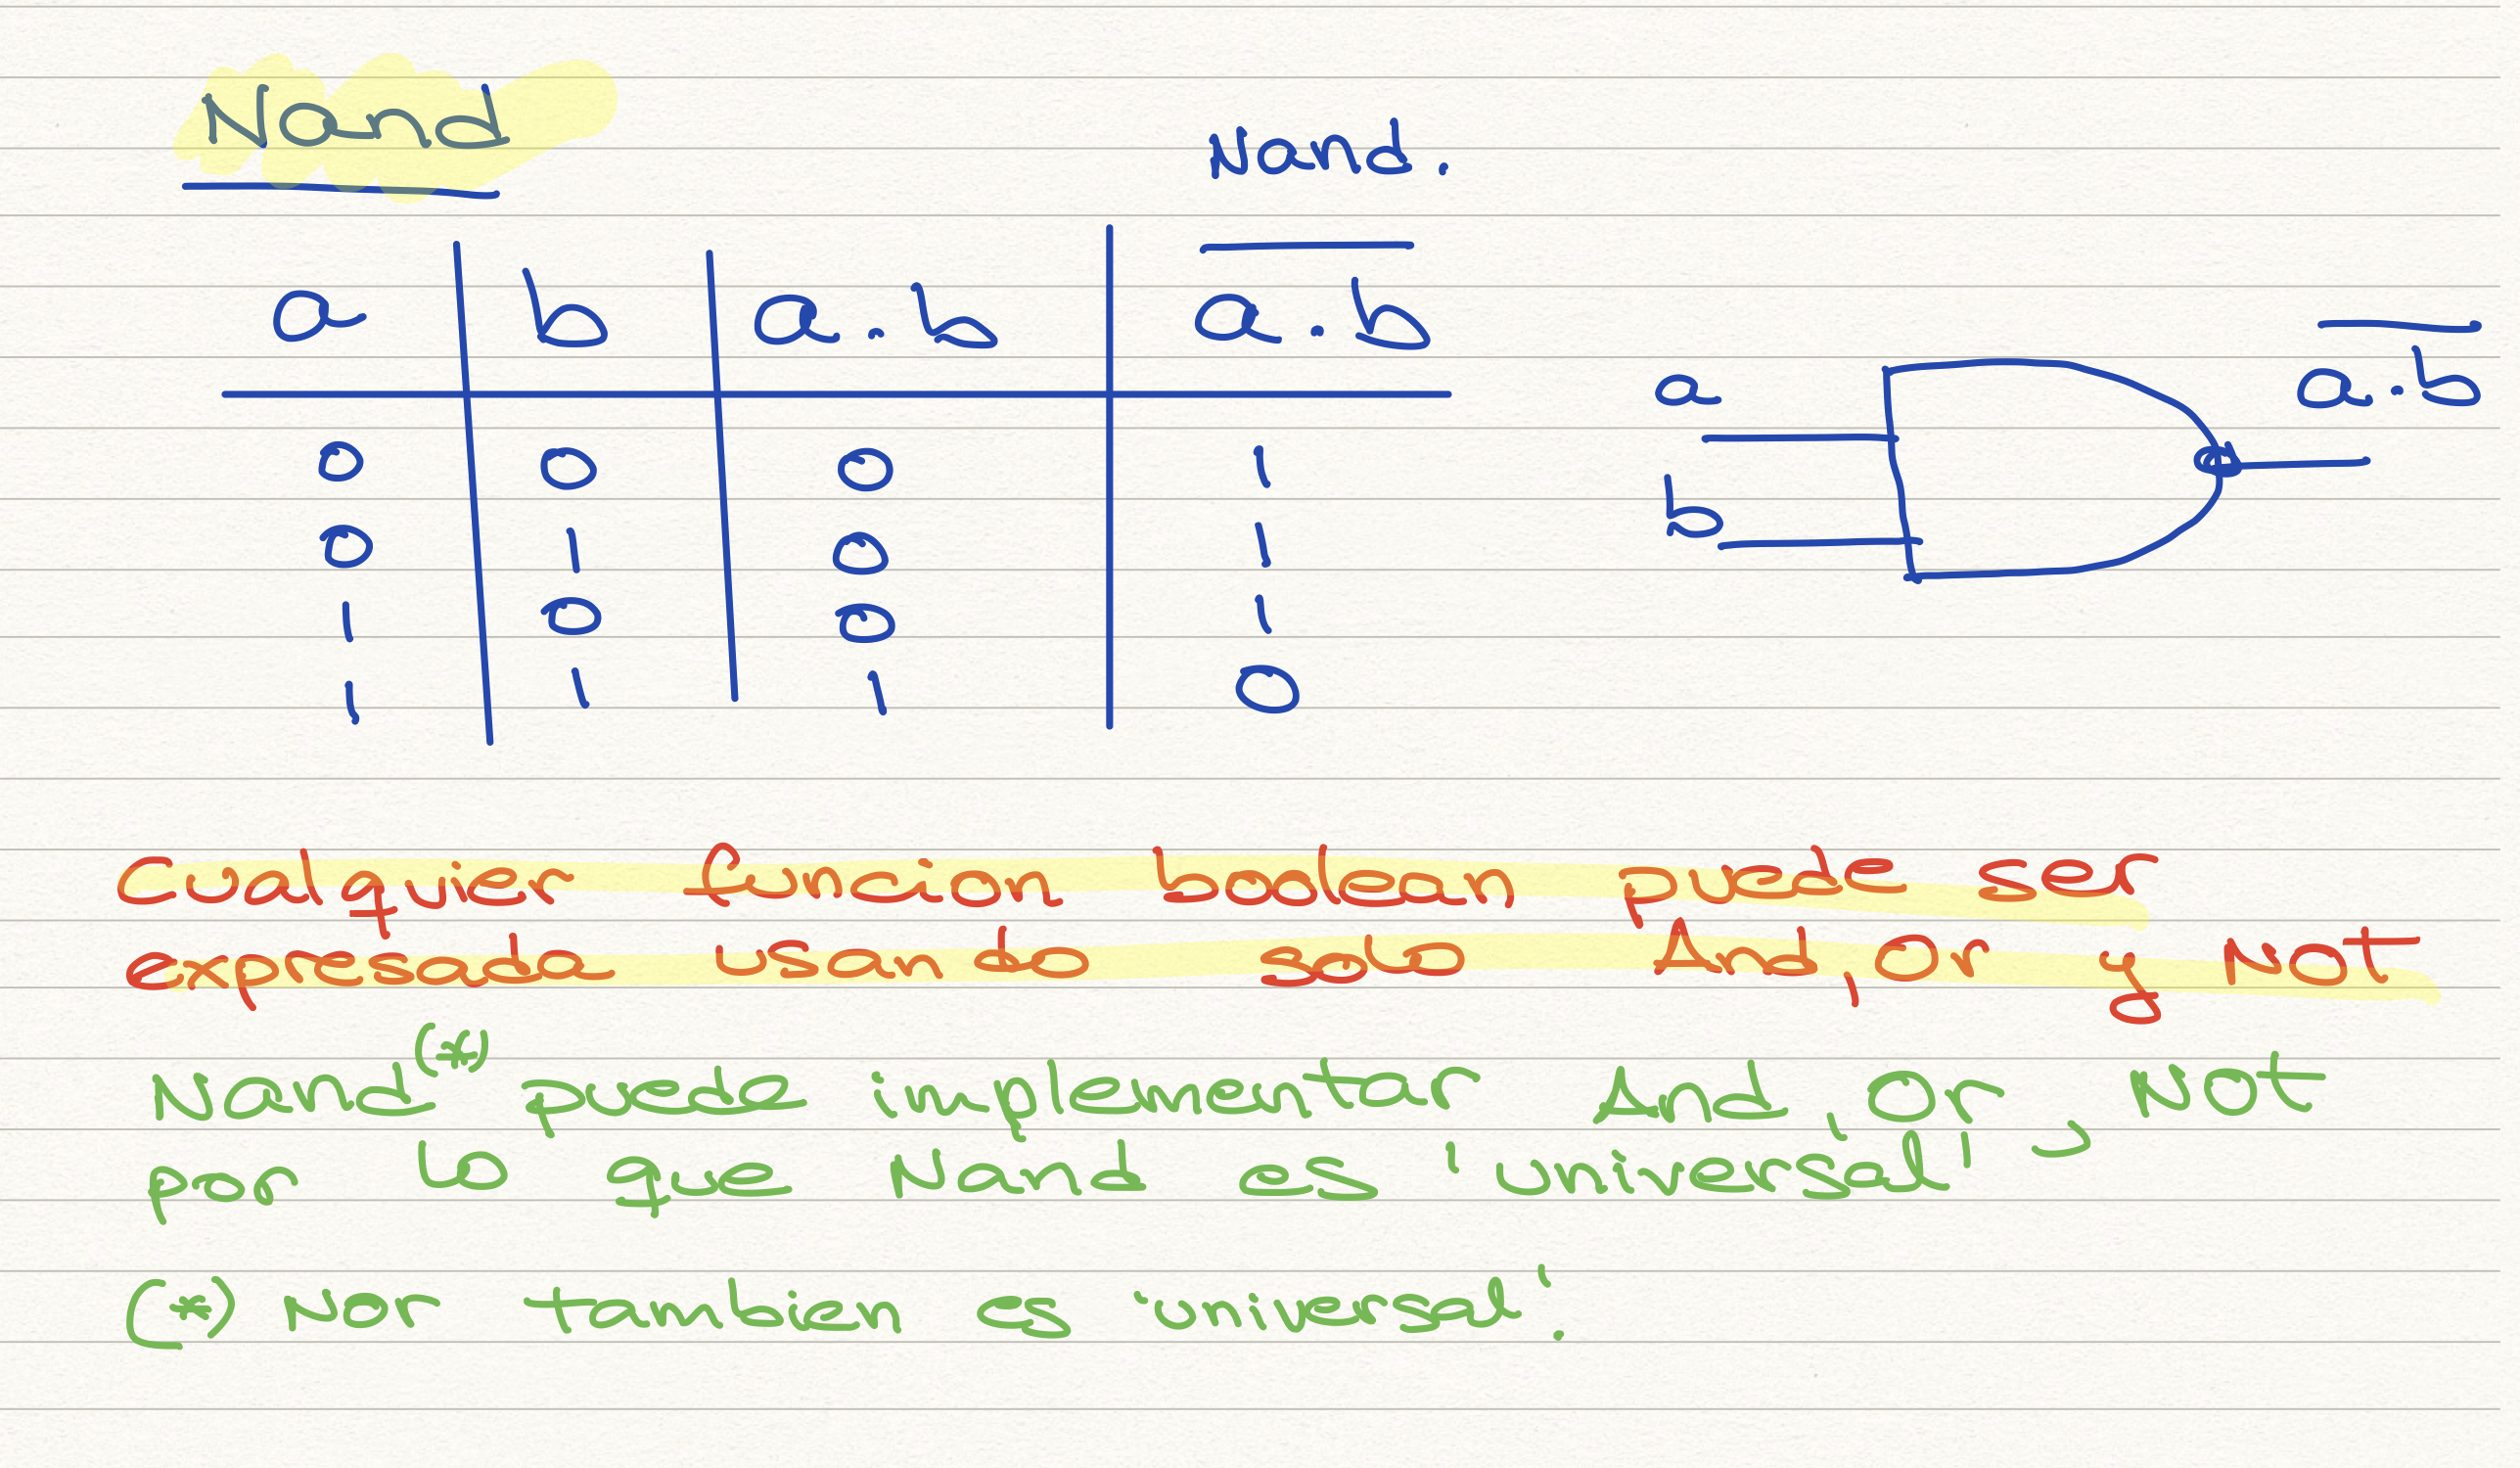 Nand
Nand.
a b a.b a.b
0 0 0 1
0 1 0 1
1 0 0 1
1 1 1 0
a
b
a.b
Cualquier funcion boolean puede ser
expresada usando solo And, Or y Not
Nand(*) puede implementar And, Or, Not
por lo que Nand es 'universal'
(*) Nor tambien es 'universal'.